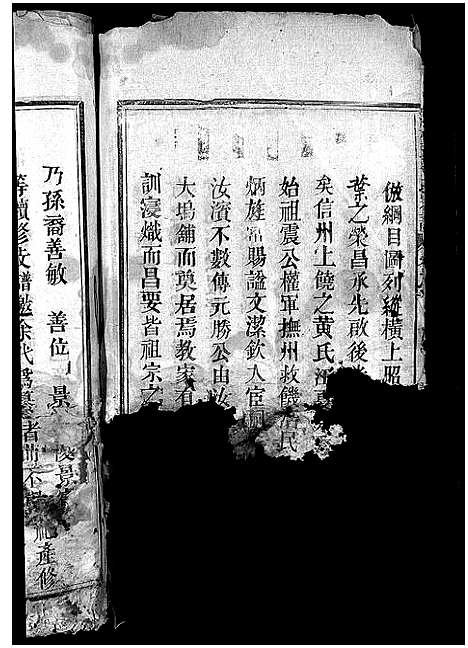 倣綱目圖列縱橫上照
葉之榮昌承先啟後
矣信州上饒之黄氏
始祖震公權軍撫州救饑民
炳旌 賜謚文潔欽入宦祠
汝濱不數傳元勝公由汝
大塢舖而奠居焉教家有
訓寖熾而昌要皆祖宗之
乃孫裔善敏 善位 景 俊景
等續修文譜 余代爲纂者 不 祀產修